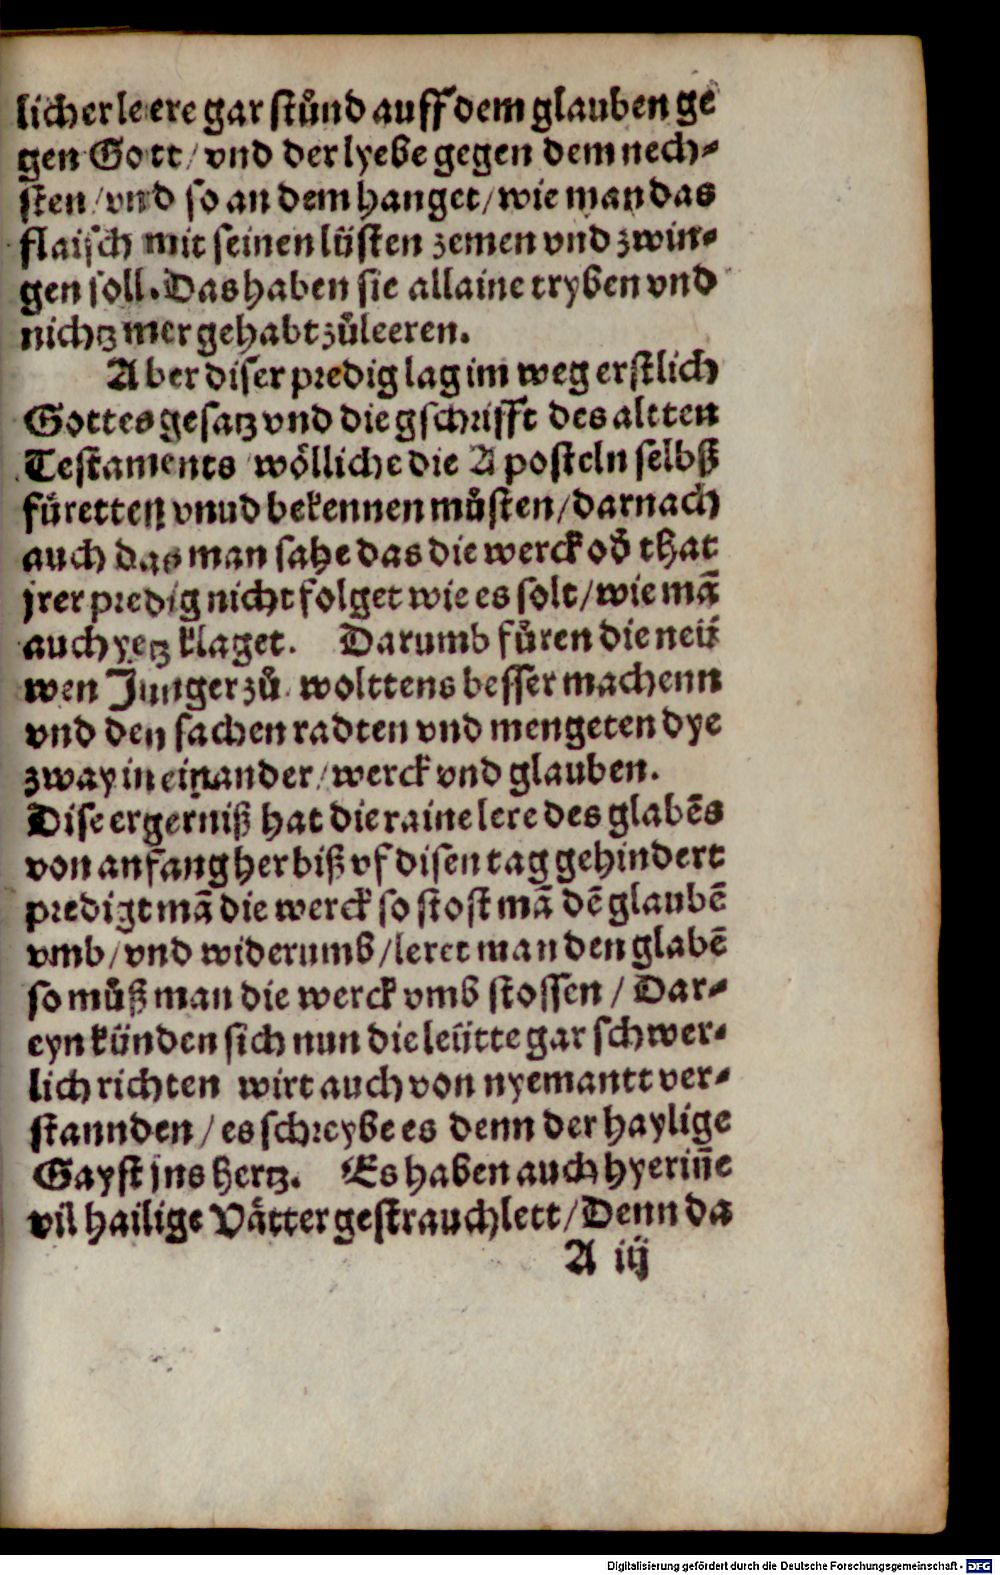 licher leere gar stůnd auff dem glauben ge
gen Gott / vnd der lyebe gegen dem nech-
sten / vnd so an dem hanget / wie man das
flaisch mit seinen lüsten zemen vnd zwin-
gen soll. Das haben sie allaine tryben vnd
nichtz mer gehabt zůleeren.
Aber diser predig lag im weg erstlich
Gottes gesatz vnd die gschrifft des altten
Testaments wölliche die Aposteln selbß
fůretten vnud bekennen můsten / darnach
auch das man sahe das die werck oď that
jrer predig nicht folget wie es solt / wie mã
auch yetz klaget. Darumb fůren die neü
wen Junger zů wolttens besser machenn
vnd den sachen radten vnd mengeten dye
zway in einander / werck vnd glauben.
Dise ergerniß hat die raine lere des glabẽs
von anfang her biß vf disen tag gehindert
predigt mã die werck so stost mã dẽ glaubẽ
vmb / vnd widerumb / leret man den glabẽ
so můß man die werck vmb stossen / Dar-
eyn künden sich nun die leütte gar schwer-
lich richten wirt auch von nyemantt ver-
stannden / es schreybe es denn der haylige
Gayst jns hertz. Es haben auch hyeriñe
vil hailige Vätter gestrauchlett / Denn da
A iij
Digitalisierung gefördert durch die Deutsche Forschungsgemeinschaft - DFG